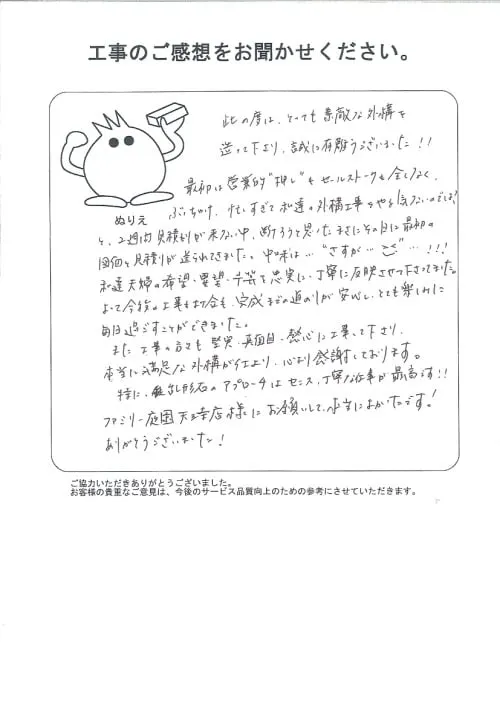 工事のご感想をお聞かせください。
此の度は、とっても素敵な外構を
造って下さり、誠に有難うございました!!
最初は営業的"押し"もセールストークも全くなく、
ぶっちゃけ、忙しすぎて私達の外構工事をやる気ないのでは?
と、2週間見積りが来ない中、断ろうと思ったまさにその日に最初の
図面と見積りが送られてきました。中味は…"さすが…"…!!!
私達夫婦の希望・要望・予算を忠実に、丁寧に反映させて下さってました。
よって今後の工事も打合も、完成までの道のりが安心し、とても楽しみに
毎日過ごすことができました。
また工事の方々も堅実・真面目・熱心に工事して下さり、
本当に満足な外構が仕上り、心より感謝しております。
特に、乱形石のアプローチはセンス、丁寧な仕事が最高です!!
ファミリー庭園天王寺店様にお願いして、本当によかったです!
ありがとうございました!
ぬりえ
ご協力いただきありがとうございました。
お客様の貴重なご意見は、今後のサービス品質向上のための参考にさせていただきます。